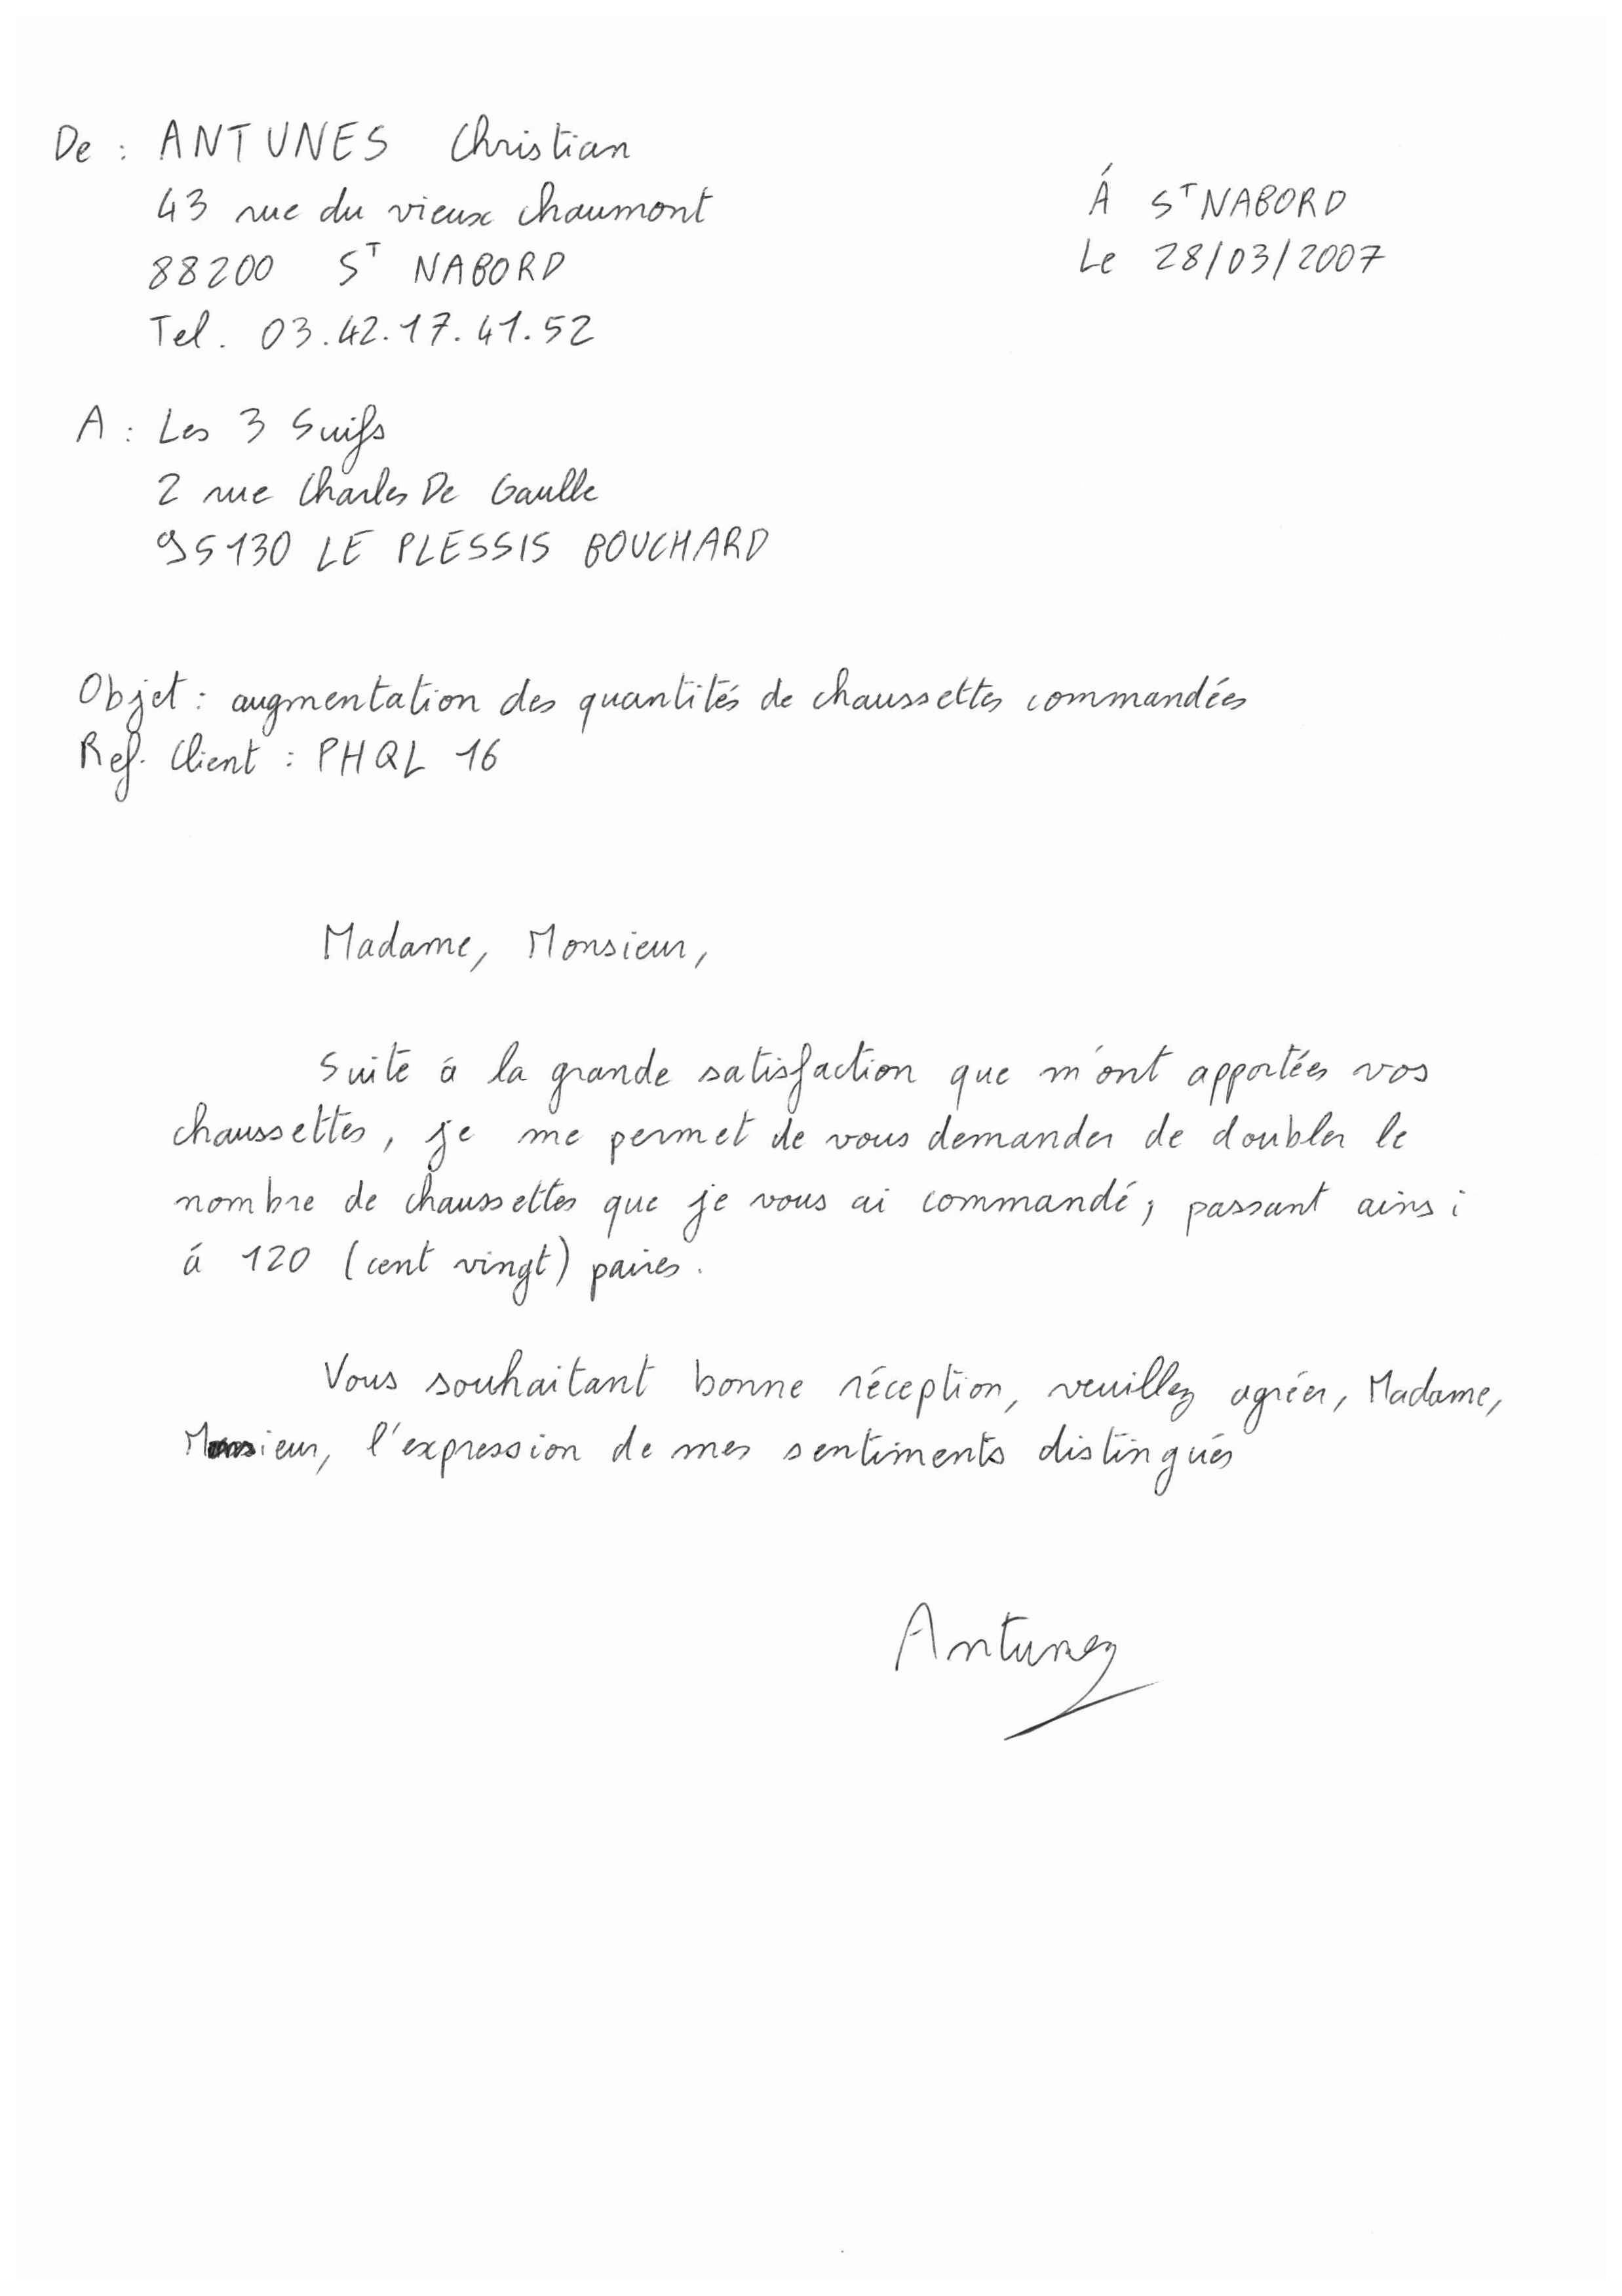 De : ANTUNES Christian
43 rue du vieux chaumont
88200 ST NABORD
Tel. 03.42.17.41.52
Á ST NABORD
Le 28/03/2007
A : Les 3 Suifs
2 rue Charles De Gaulle
95130 LE PLESSIS BOUCHARD
Objet : augmentation des quantités de chaussettes commandées
Ref. Client : PHQL 16
Madame, Monsieur,
Suite á la grande satisfaction que m'ont apportées vos
chaussettes, je me permet de vous demander de doubler le
nombre de chaussettes que je vous ai commandé, passant ainsi
á 120 (cent vingt) paires.
Vous souhaitant bonne réception, veuillez agréer, Madame,
Monsieur, l'expression de mes sentiments distingués
Antunez